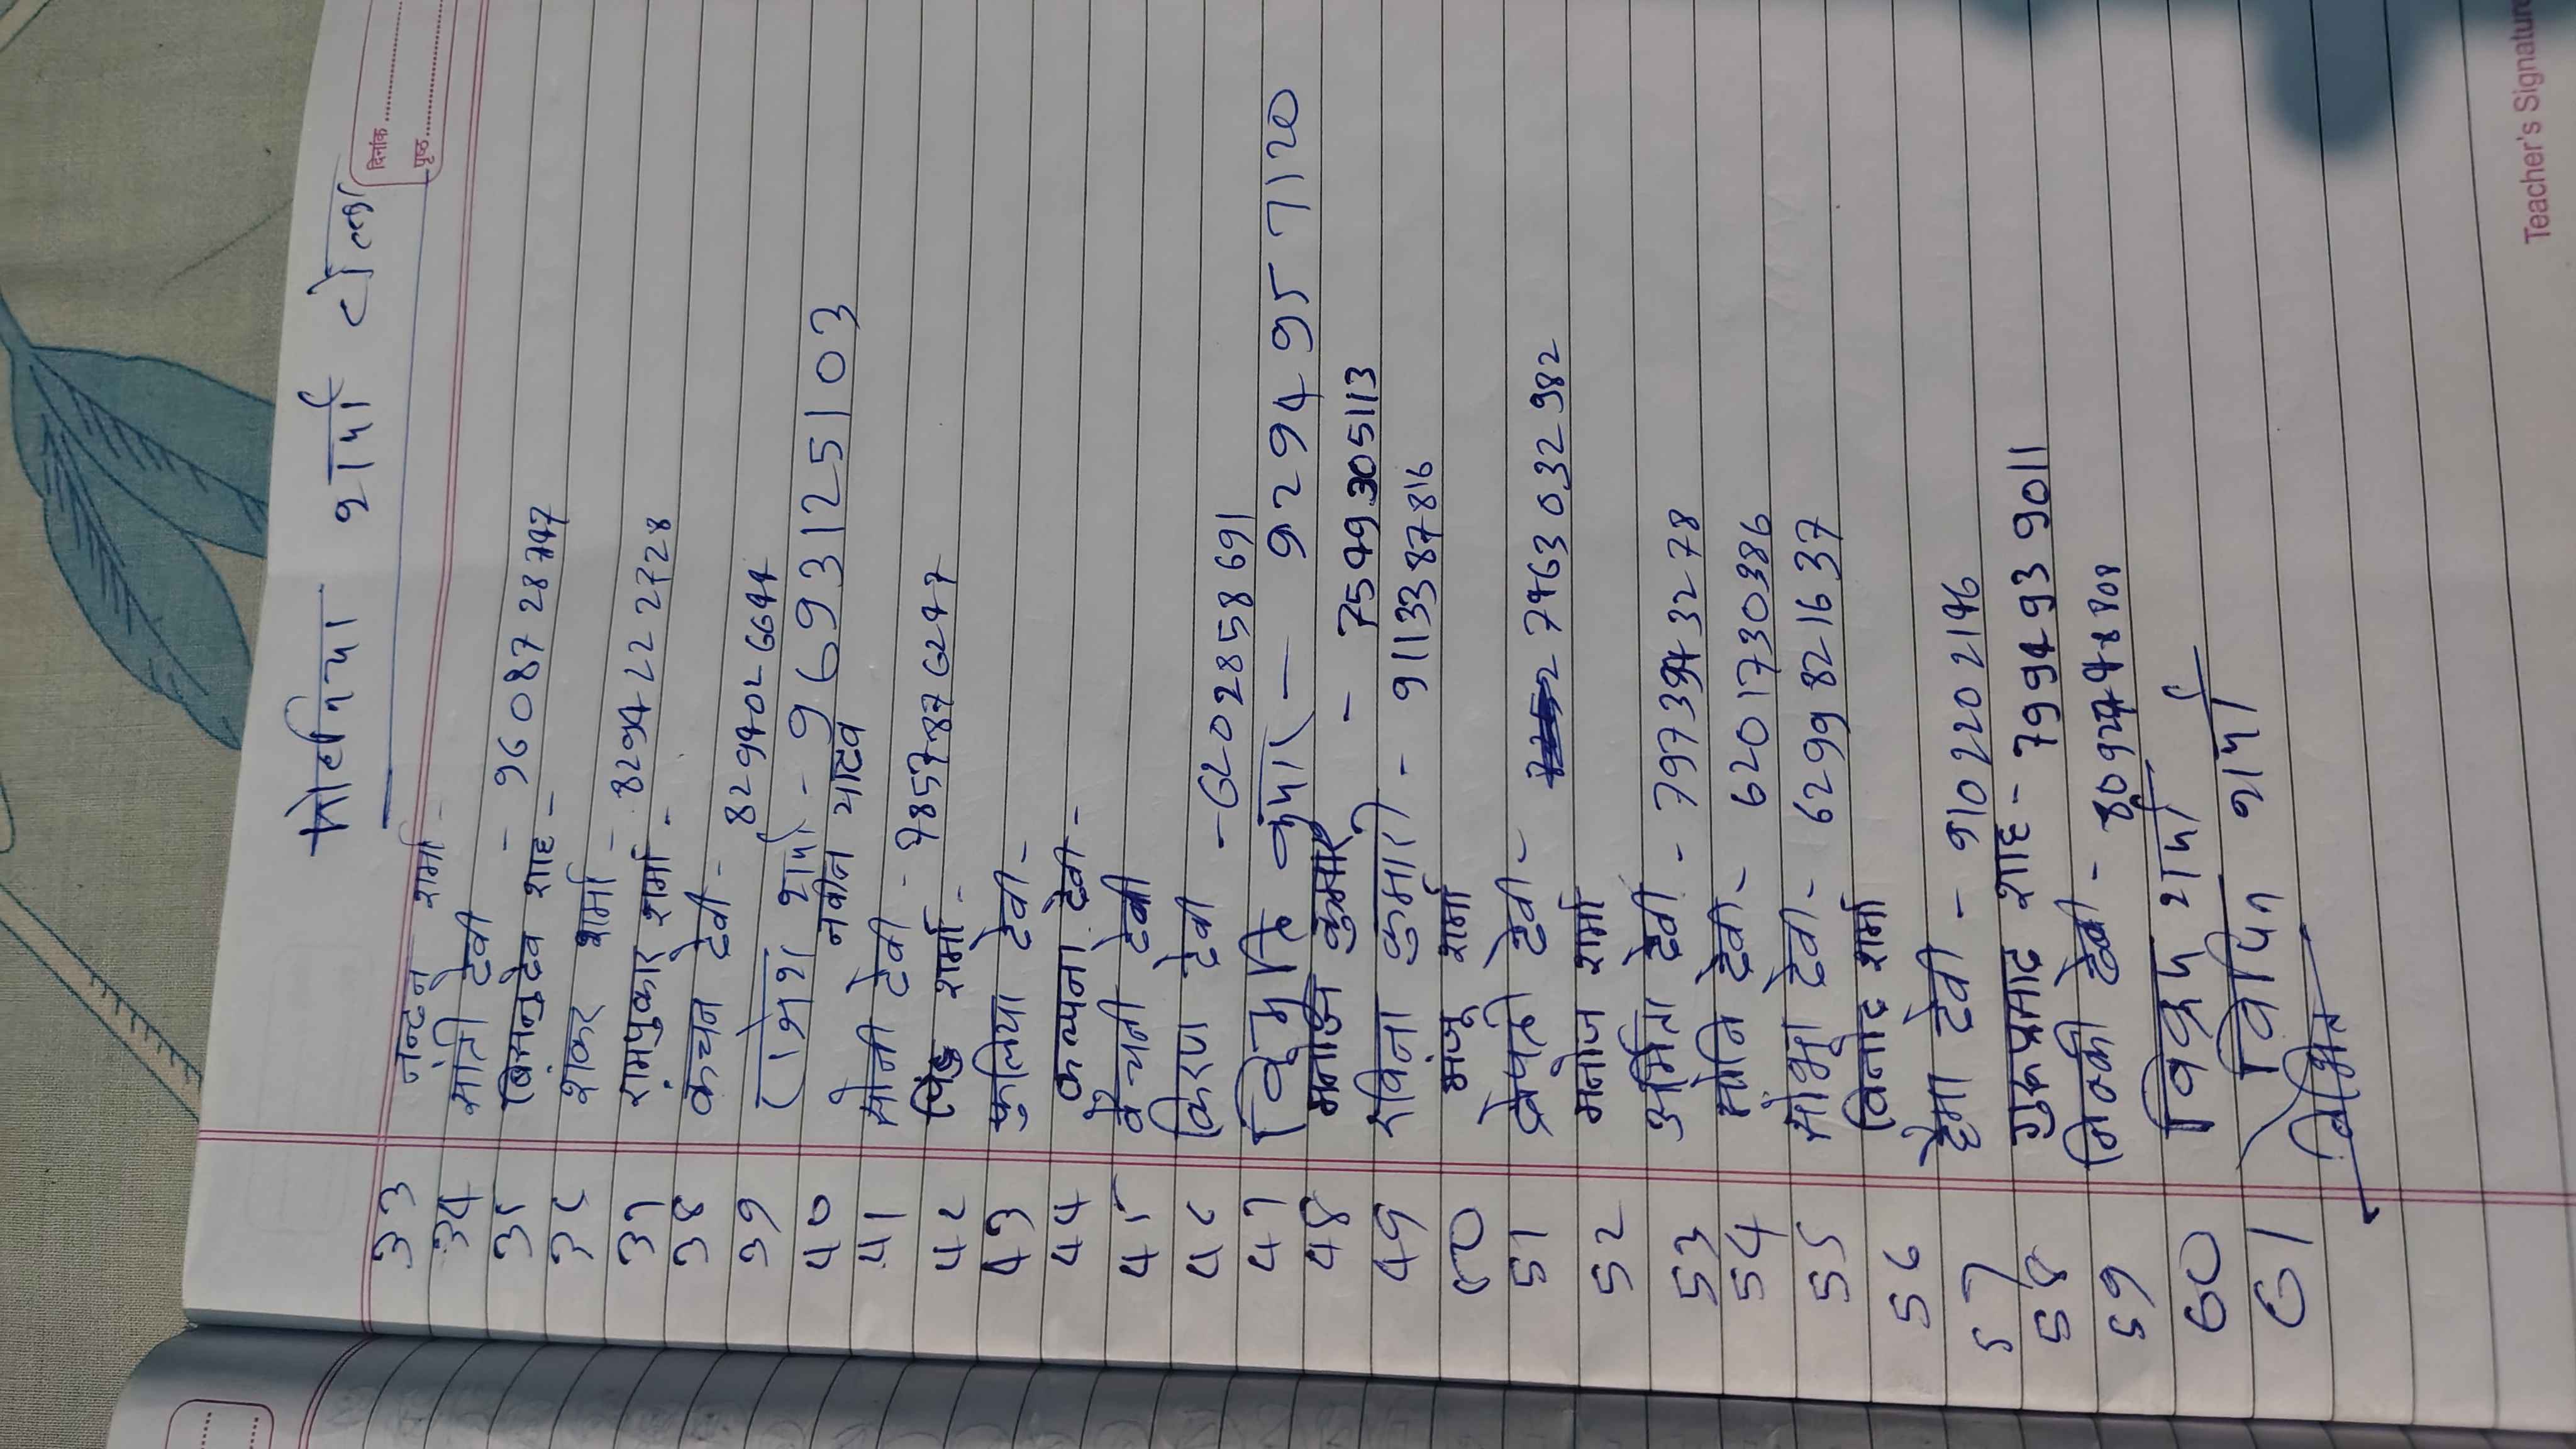 दिनांक
पृष्ठ
शर्मा टोला
33 नन्दन शर्मा -
34 मांती देवी
35 बिसनुदेव शाह - 9608728747
36 शंकर शर्मा -
37 रामपुकार शर्मा - 8294222728
38 कंचन देवी -
39 रमेश शर्मा - 9693125103
40 नवीन यादव
41 सोनी देवी -
42 पिंटु शर्मा -
43 फुलिया देवी -
44 कल्पना देवी -
45 बेचनी देवी
46 किरण देवी - 6202858691
47 कुमार - 9294957120
48 मनोज कुमार - 7549305113
49 रविना कुमारी - 9113387816
50 मंजू शर्मा
51 देवी - 7463032982
52 मनोज शर्मा
53 अमित्रा देवी - 7973943278
54 सोनि देवी - 6201730386
55 सोभा देवी - 6299821637
56 विनोद शर्मा
57 हेमा देवी - 9102202146
58 गुरूप्रसाद शाह - 7994939011
59 मिक्की देवी -
60 विक्रम शर्मा
61 विपिन शर्मा
Teacher's Signature